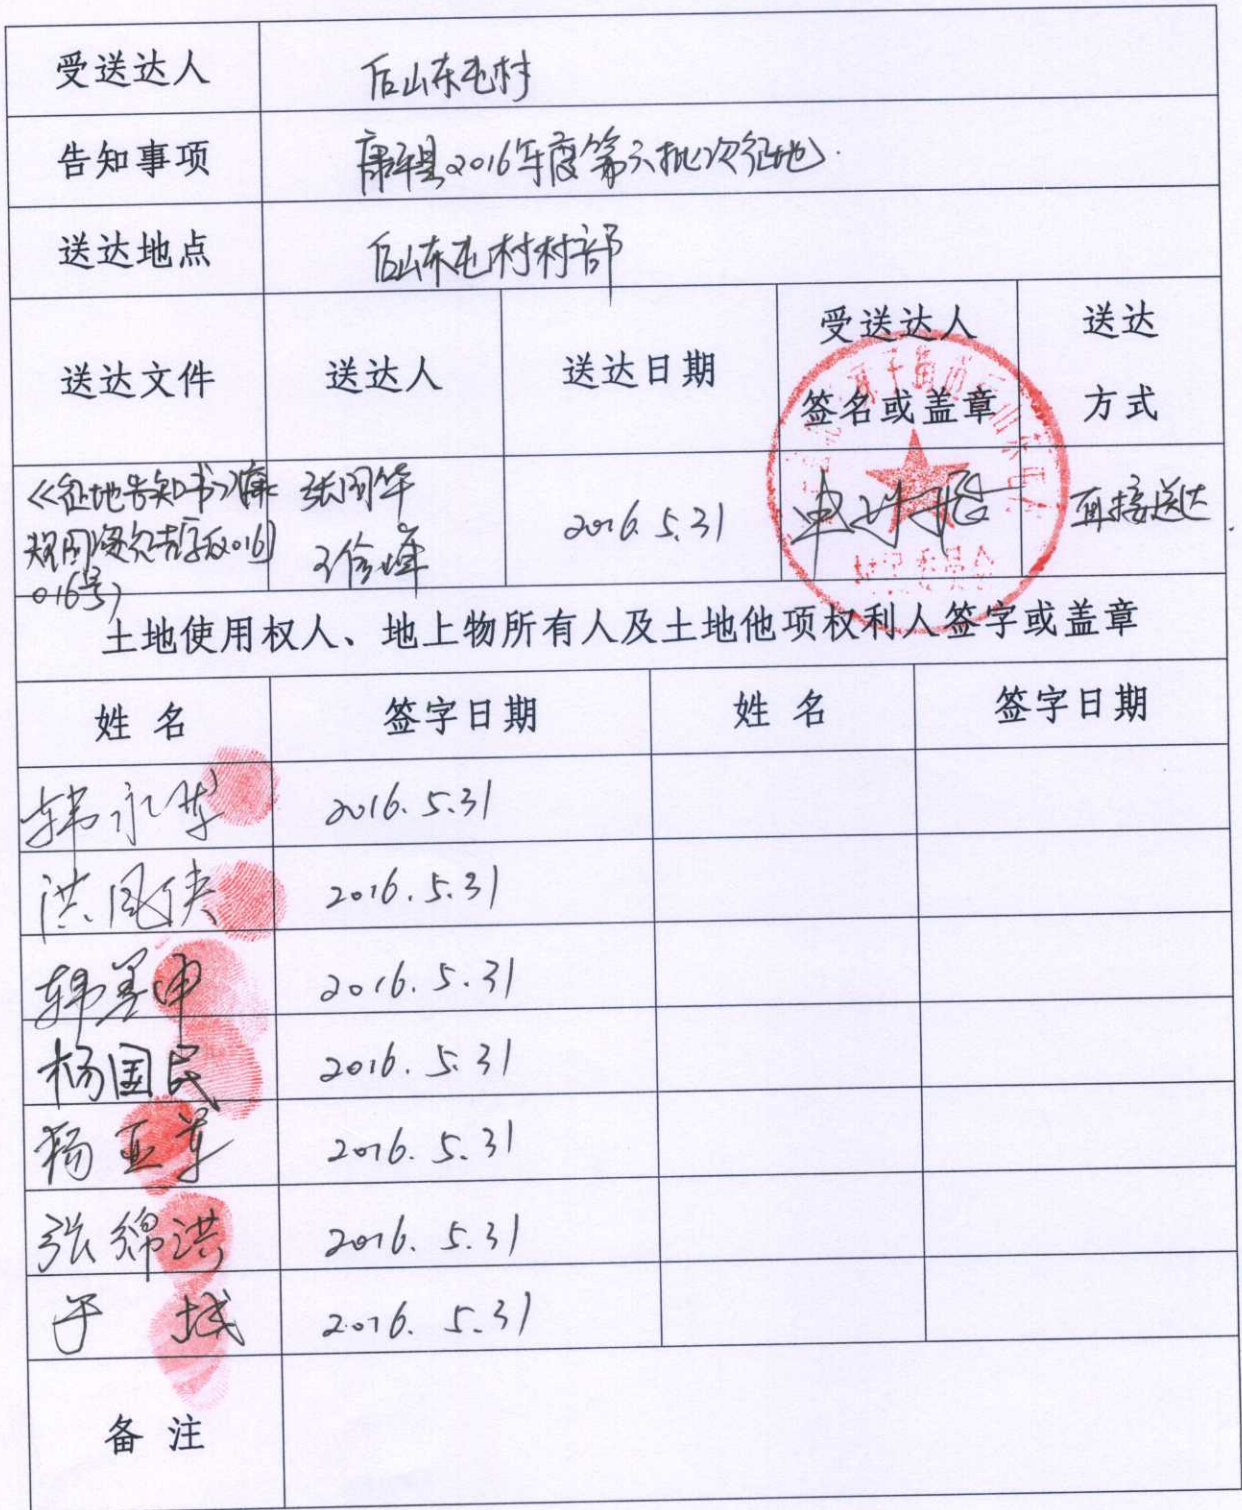 受送达人 后山东屯村
告知事项 康平县2016年度第六批次征地
送达地点 后山东屯村村部
送达文件 送达人 送达日期 受送达人签名或盖章 送达方式
《征地告知书》(康
016号)
2016.5.31 直接送达
土地使用权人、地上物所有人及土地他项权利人签字或盖章
姓名 签字日期 姓名 签字日期
韩永 2016.5.31
洪凤侠 2016.5.31
韩 申 2016.5.31
杨国民 2016.5.31
杨亚军 2016.5.31
张绵洪 2016.5.31
于 2016.5.31
备注